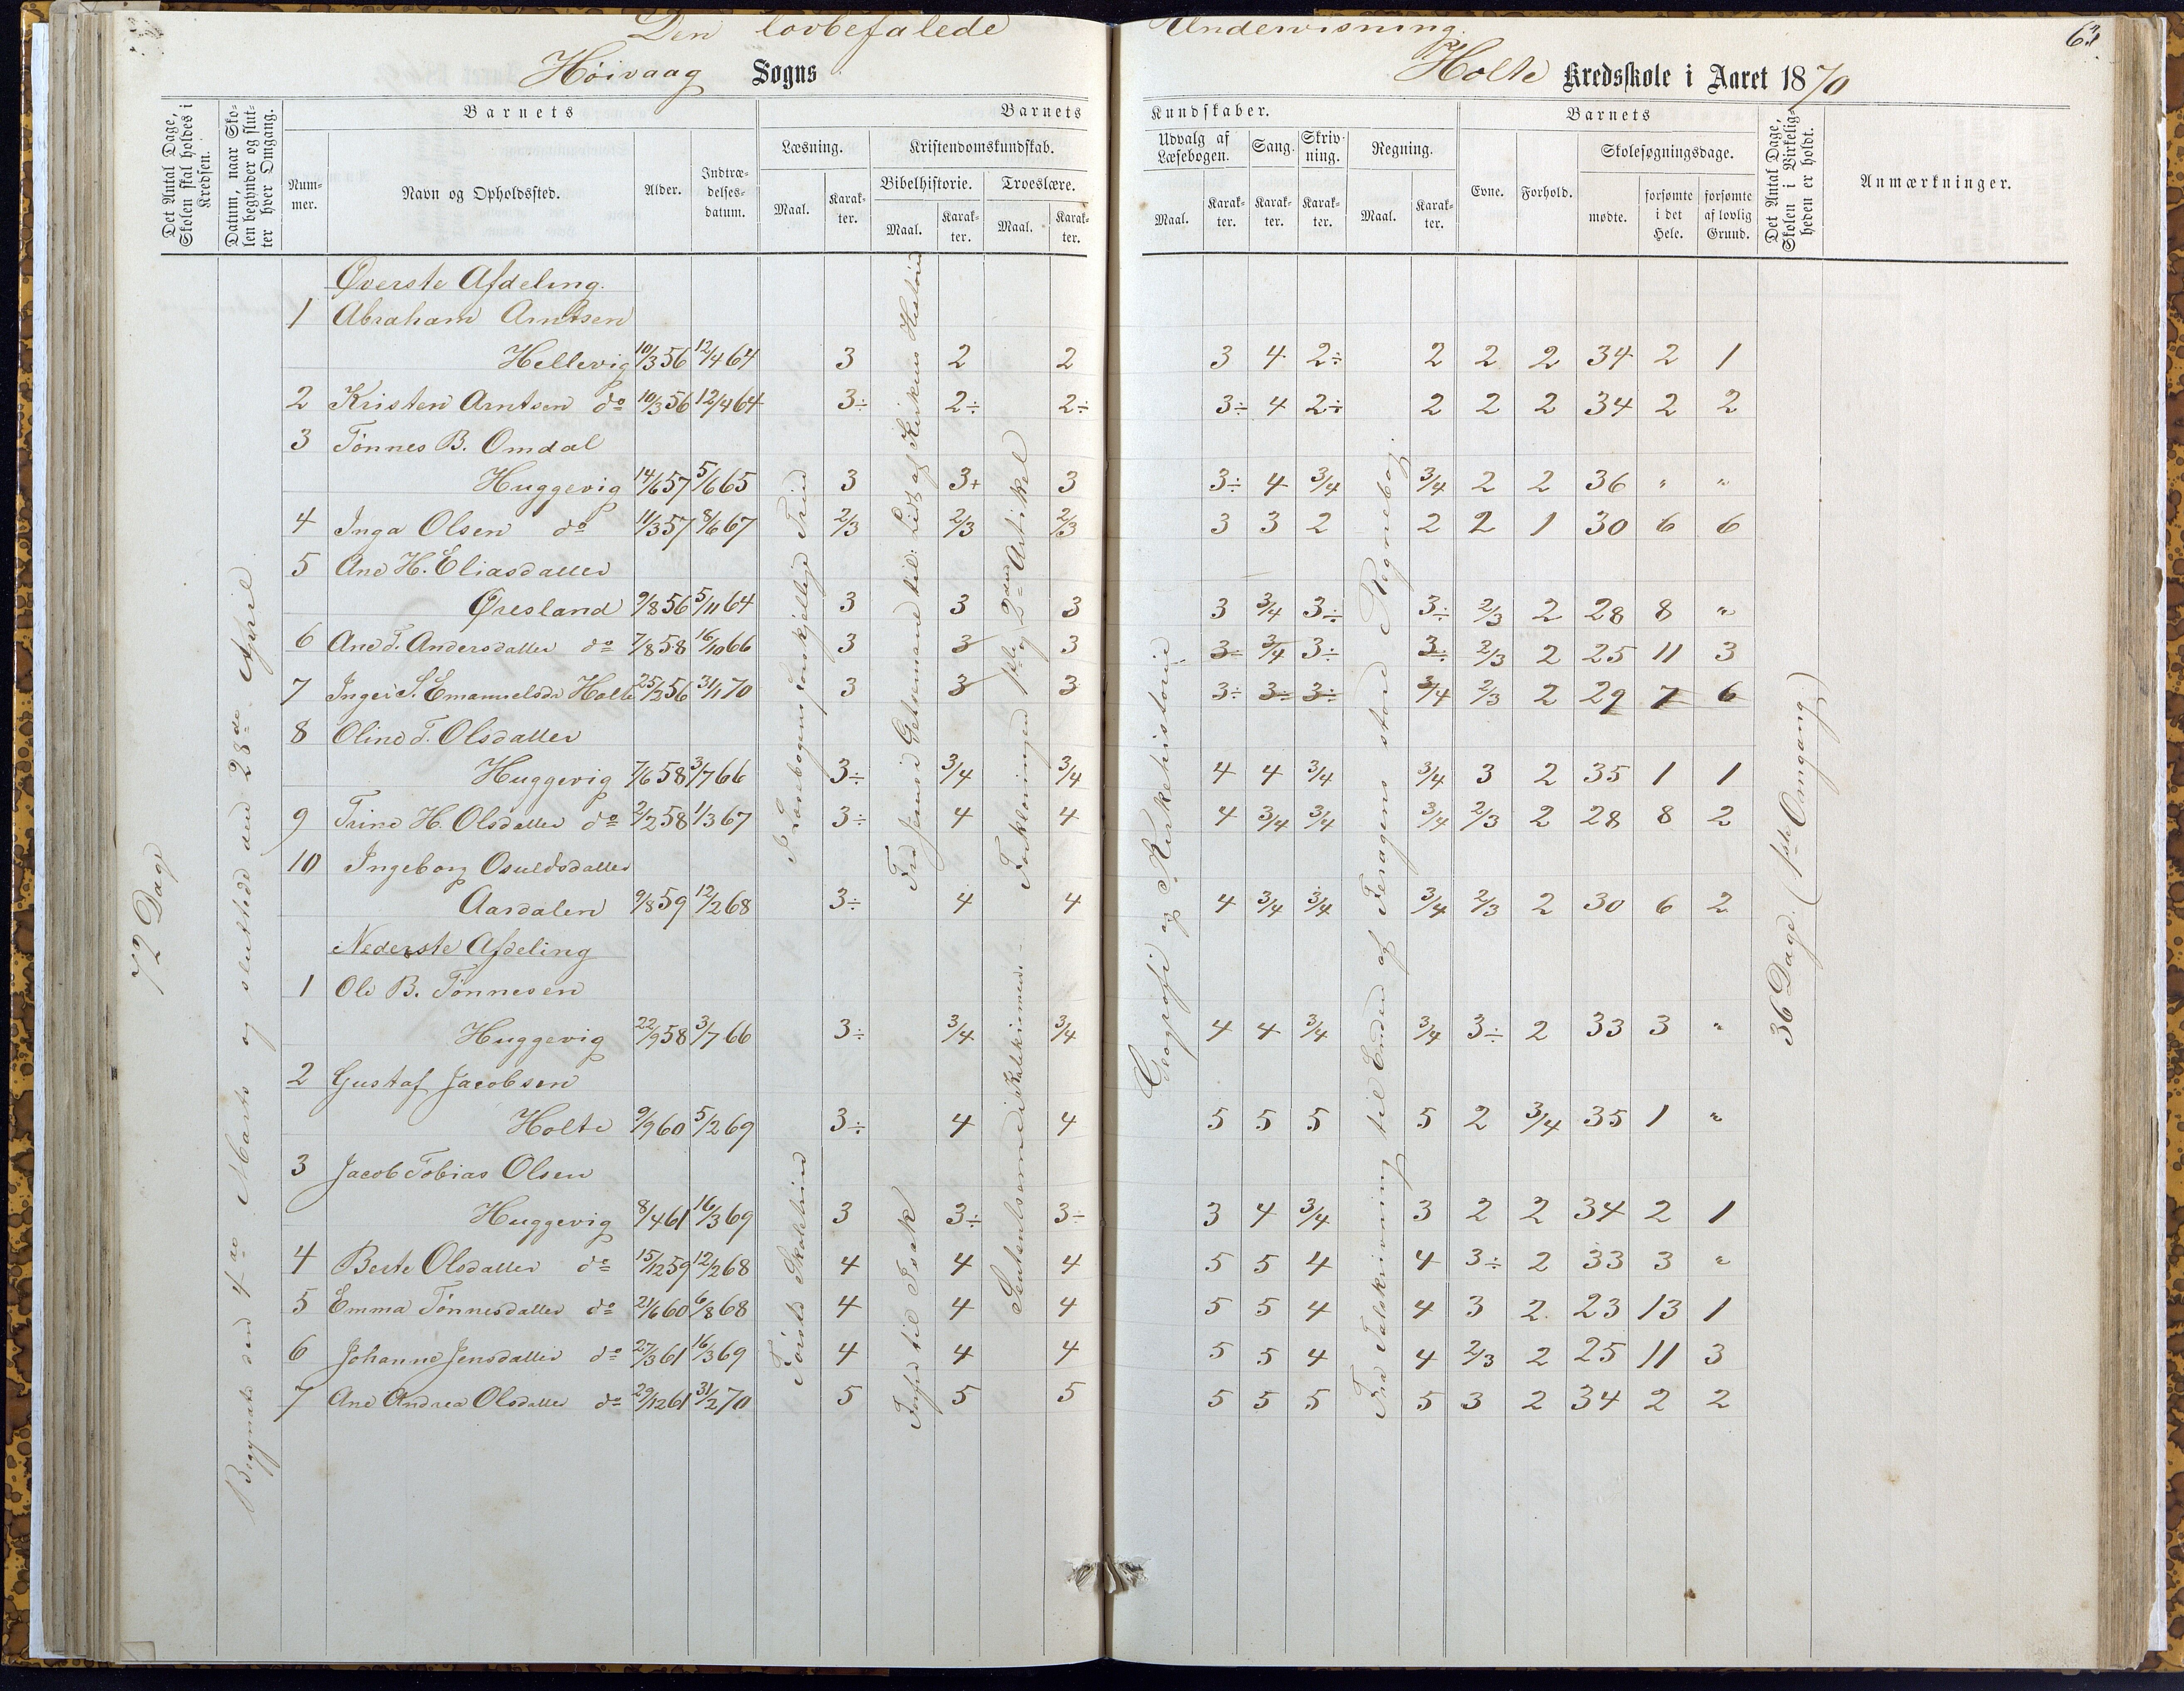 Den lovbefalede Undervisning.
62
Høivaag Sogns Holte Kredsskole i Aaret 1870
Det Antal Dage, Skolen skal holdes i Kredsen.
Datum, naar Skolen begynder og slutter hver Omgang.
Barnets
Nummer.
Navn og Opholdssted.
Alder.
Indtrædelsesdatum.
Barnets Kundskaber.
Læsning.
Maal.
Karakter.
Kristendomskundskab.
Bibelhistorie.
Maal.
Karakter.
Troeslære.
Maal.
Karakter.
Udvalg af Læsebogen.
Maal.
Karakter.
Sang.
Karakter.
Skrivning.
Karakter.
Regning.
Maal.
Karakter.
Barnets
Evne.
Forhold.
Skolesøgningsdage.
mødte.
forsømte i det Hele.
forsømte af lovlig Grund.
Det Antal Dage, Skolen i Virkeligheden er holdt.
Anmærkninger.
72 Dage
Begyndte den 4de Marts og sluttede den 28de April
I Læsebogens forskjellige Trin
Fra Jesus i Getsemane til Lidt af Kirkens Historie
Forklaringen 1ste og 2den Artikel
Geografi og Kirkehistorie
Fra Talskrivning til Enden af Feragens store Regnebog.
36 Dage. (1ste Omgang)
Første Skoletrin
Forfra til Isak
Sentenserne i Katekismen
Øverste Afdeling.
1 Abraham Arntsen
Hellevig 10/3 56 12/4 64 3 2 2 3 4 2÷ 2 2 2 34 2 1
2 Kristen Arntsen do 10/3 56 12/4 64 3÷ 2÷ 2÷ 3÷ 4 2÷ 2 2 2 34 2 2
3 Tønnes B. Omdal
Huggevig 14/6 57 5/6 65 3 3+ 3 3÷ 4 3/4 3/4 2 2 36 " "
4 Inga Olsen do 11/3 57 8/6 67 2/3 2/3 2/3 3 3 2 2 2 1 30 6 6
5 Ane H. Eliasdatter
Øresland 9/8 56 5/11 64 3 3 3 3 3/4 3÷ 3÷ 2/3 2 28 8 "
6 Ane T. Andersdatter do 7/8 58 16/10 66 3 3 3 3÷ 3/4 3÷ 3÷ 2/3 2 25 11 3
7 Inger S. Emanuelsdr Holte 25/2 56 31/1 70 3 3 3 3÷ 3÷ 3÷ 3/4 2/3 2 29 7 6
8 Oline T. Olsdatter
Huggevig 7/6 58 3/7 66 3÷ 3/4 3/4 4 4 3/4 3/4 3 2 35 1 1
9 Trine H. Olsdatter do 2/2 58 1/3 67 3÷ 4 4 4 3/4 3/4 3/4 2/3 2 28 8 2
10 Ingeborg Osuldsdatter
Aardalen 9/8 59 12/2 68 3÷ 4 4 4 3/4 3/4 3/4 2/3 2 30 6 2
Nederste Afdeling
1 Ole B. Tønnesen
Huggevig 22/9 58 3/7 66 3÷ 3/4 3/4 4 4 3/4 3/4 3÷ 2 33 3 "
2 Gustaf Jacobsen
Holte 9/9 60 5/2 69 3÷ 4 4 5 5 5 5 2 3/4 35 1 "
3 Jacob Tobias Olsen
Huggevig 8/4 61 16/3 69 3 3÷ 3÷ 3 4 3/4 3 2 2 34 2 1
4 Berte Olsdatter do 15/12 59 12/2 68 4 4 4 5 5 4 4 3÷ 2 33 3 "
5 Emma Tønnesdatter do 21/6 60 6/8 68 4 4 4 5 5 4 4 3 2 23 13 1
6 Johanne Jensdatter do 27/3 61 16/3 69 4 4 4 5 5 4 4 2/3 2 25 11 3
7 Ane Andrea Olsdatter do 29/12 61 31/2 70 5 5 5 5 5 5 5 3 2 34 2 2